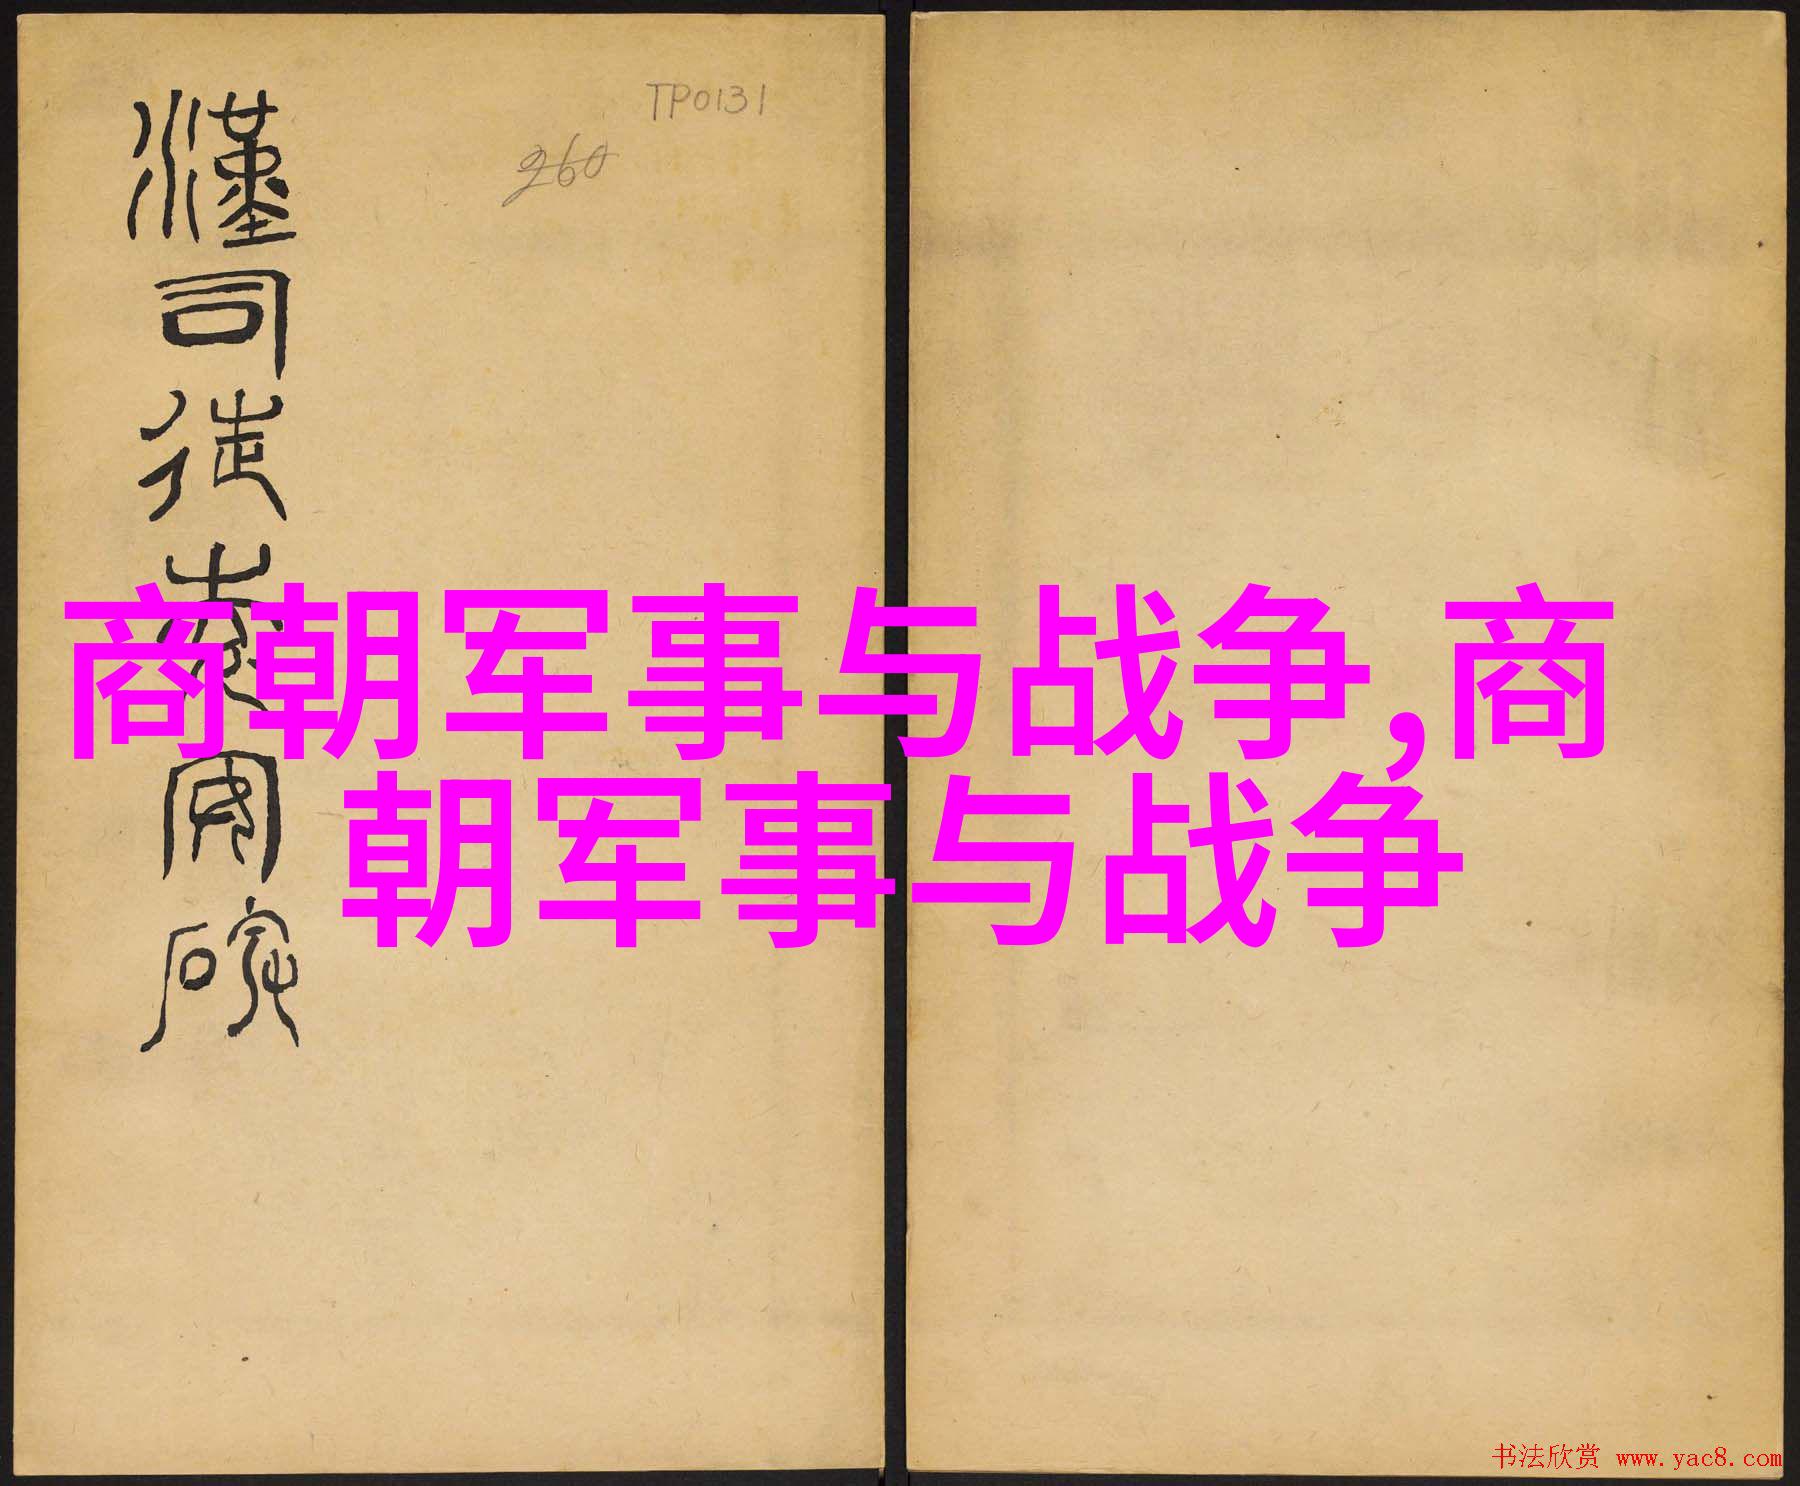 漢司徒袁安碑
TP0131
260
商朝军事与战争,商
朝军事与战争
书法欣赏 www.yac8.com